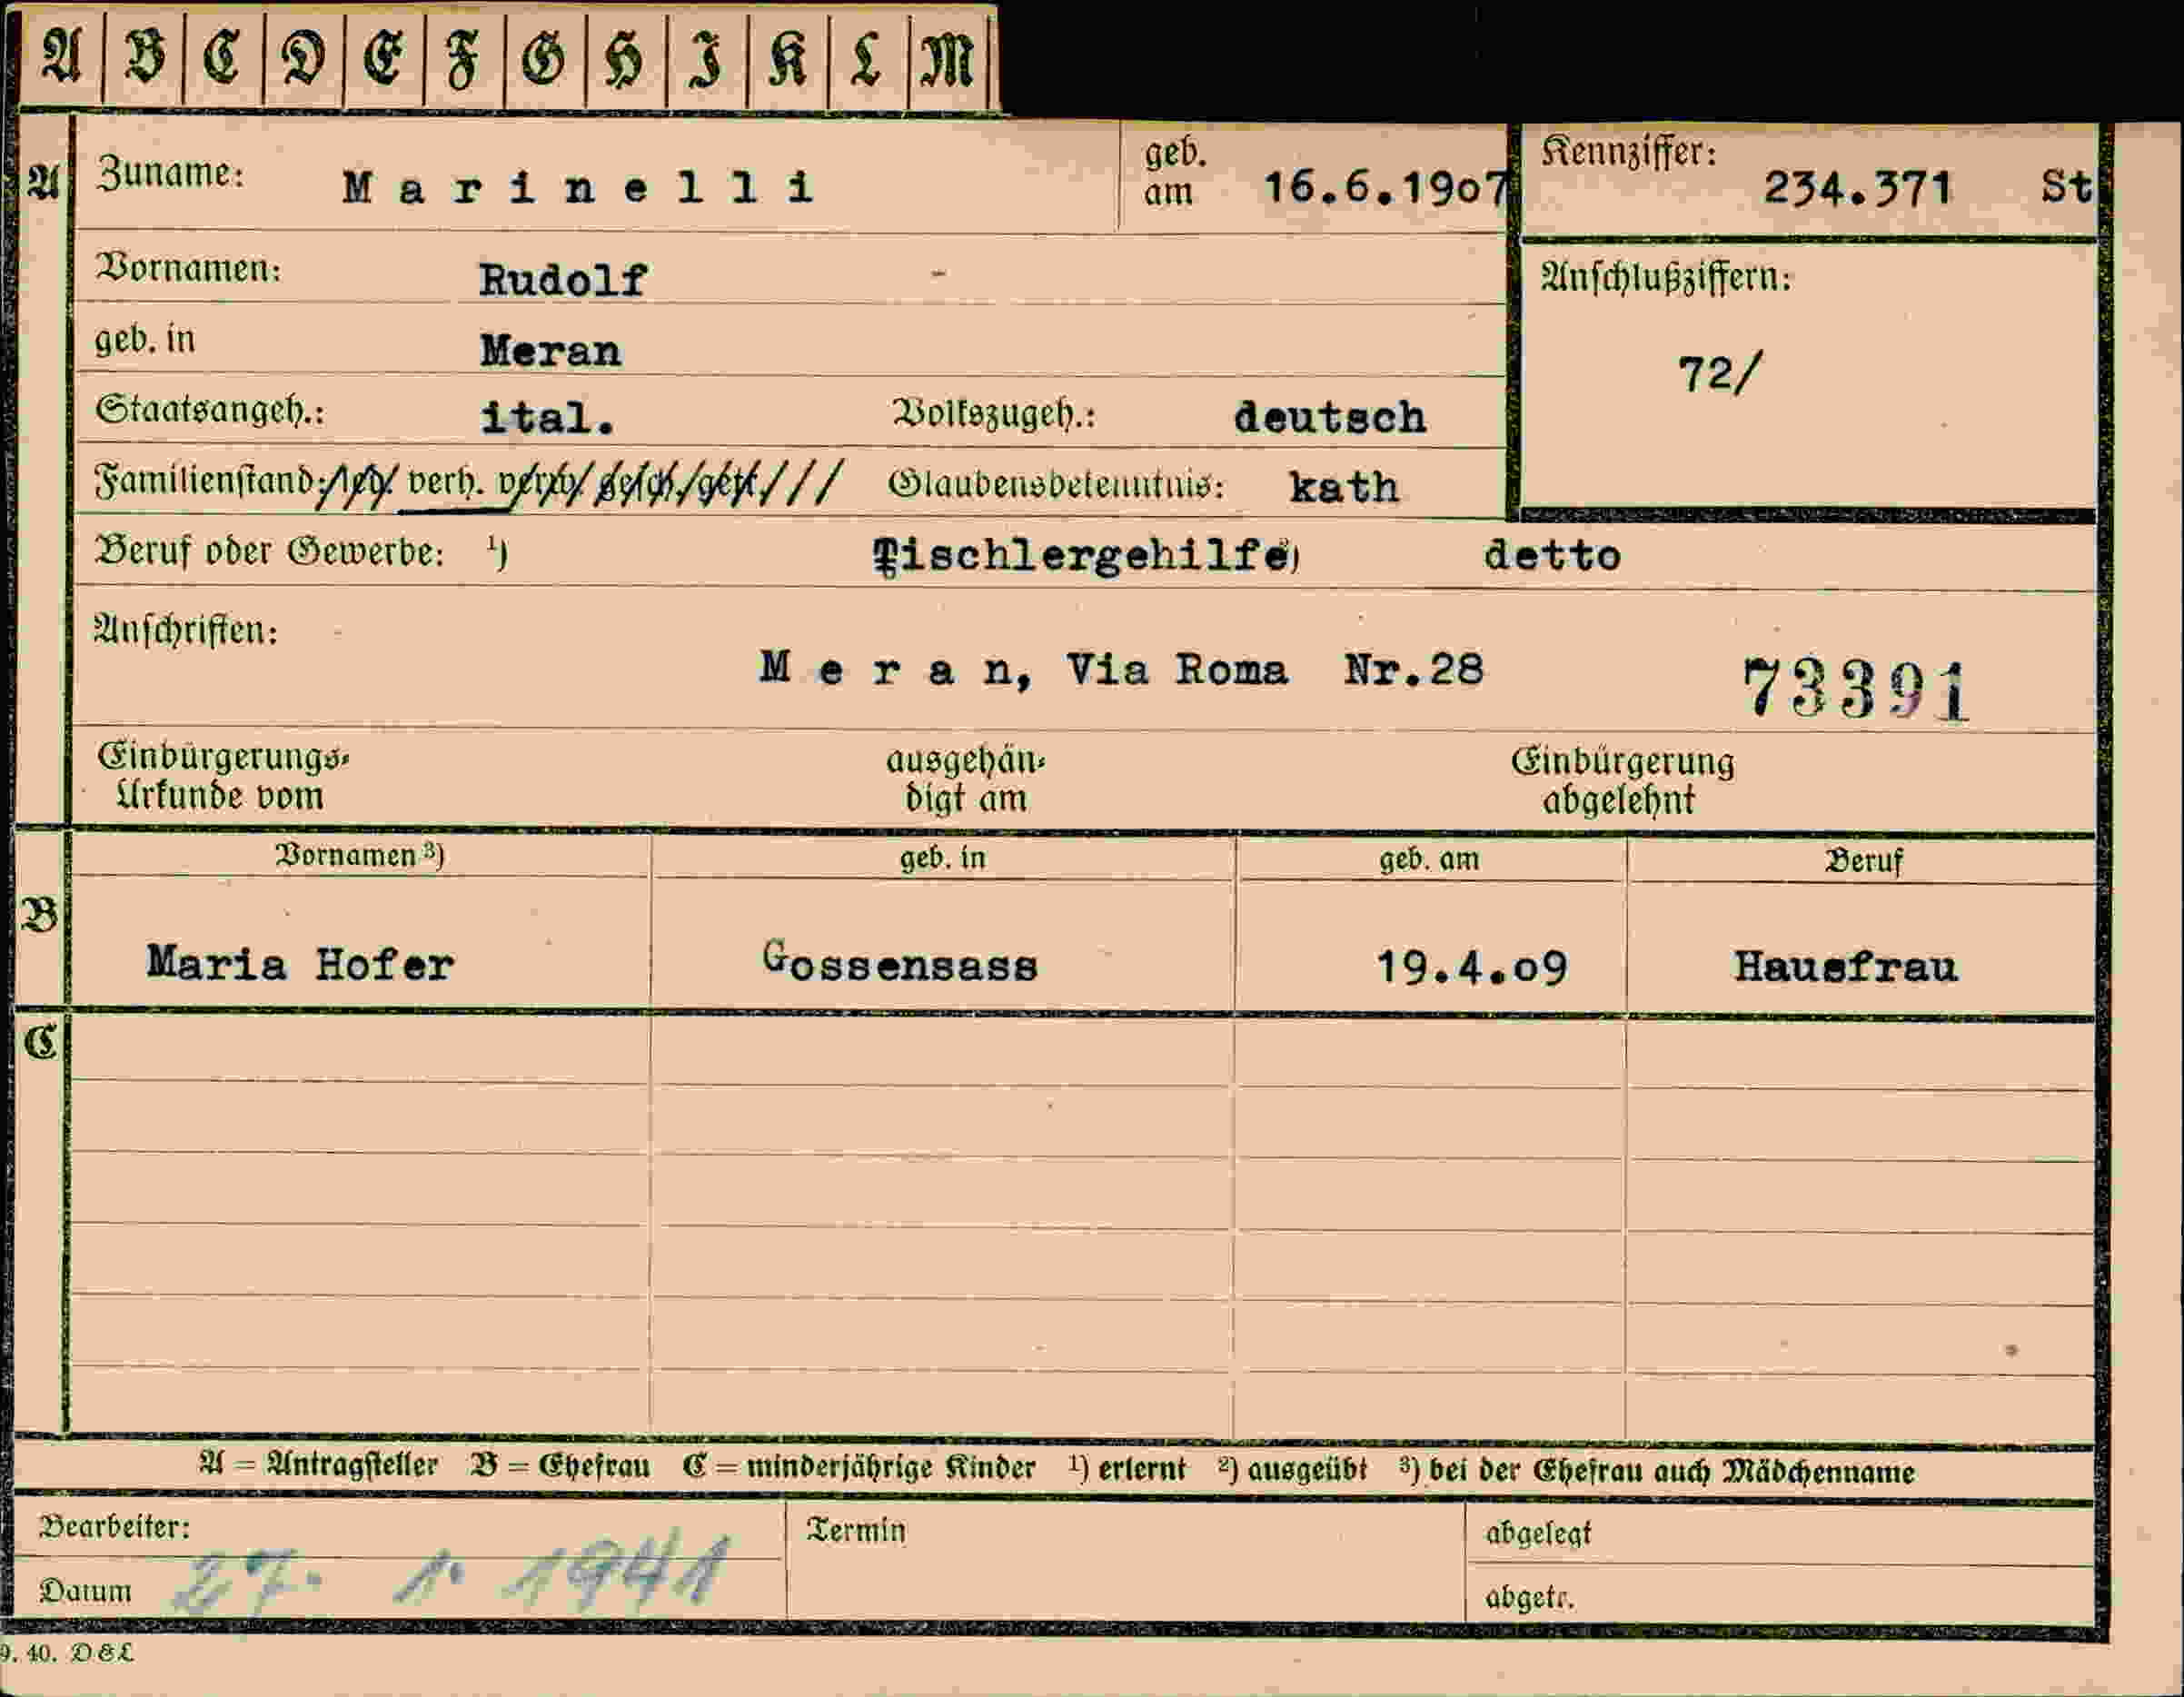 A B C D E F G H I K L M
A Zuname: Marinelli geb. am 16.6.1907 Kennziffer: 234.371 St
Vornamen: Rudolf
Anschlußziffern:
geb. in Meran
72/
Staatsangeh.: ital. Volkszugeh.: deutsch
Familienstand: led. verh. verw. gesch. getr. Glaubensbekenntnis: kath
Beruf oder Gewerbe: 1) Tischlergehilfe 2) detto
Anschriften:
Meran, Via Roma Nr.28 73391
Einbürgerungs-
Urkunde vom
ausgehän-
digt am
Einbürgerung
abgelehnt
Vornamen 3) geb. in geb. am Beruf
B
Maria Hofer Gossensass 19.4.09 Hausfrau
C
A = Antragsteller B = Ehefrau C = minderjährige Kinder 1) erlernt 2) ausgeübt 3) bei der Ehefrau auch Mädchenname
Bearbeiter: Termin abgelegt
Datum 27. 1. 1941 abgetr.
9. 40. D&L